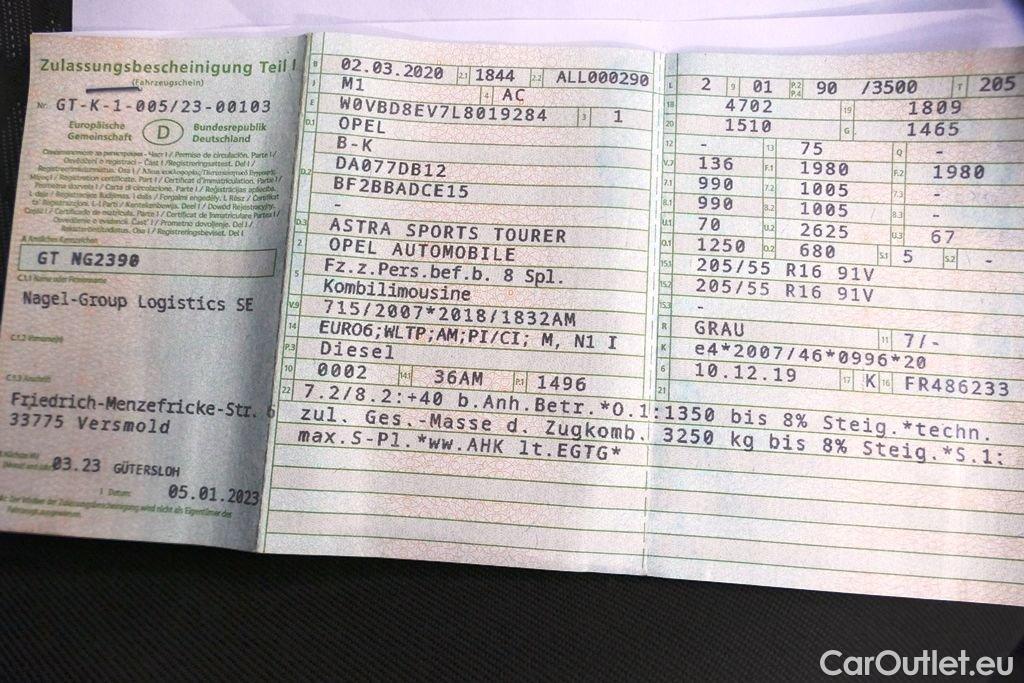 Zulassungsbescheinigung Teil I
(Fahrzeugschein)
Nr. GT-K-1-005/23-00103
Europäische Gemeinschaft D Bundesrepublik Deutschland
A Amtliches Kennzeichen
GT NG2390
C.1.1 Name oder Firmenname
Nagel-Group Logistics SE
C.1.2 Vorname(n)
C.1.3 Anschrift
Friedrich-Menzefricke-Str. 6
33775 Versmold
03.23 GÜTERSLOH
I Datum: 05.01.2023
B 02.03.2020 2.1 1844 2.2 ALL000290
J M1 4 AC
E W0VBD8EV7L8019284 3 1
D.1 OPEL
B-K
D.2 DA077DB12
BF2BBADCE15
-
D.3 ASTRA SPORTS TOURER
2 OPEL AUTOMOBILE
5 Fz.z.Pers.bef.b. 8 Spl.
Kombilimousine
V.9 715/2007*2018/1832AM
14 EURO6;WLTP;AM;PI/CI; M, N1 I
P.3 Diesel
10 0002 14.1 36AM P.1 1496
L 2 9 01 P.2 P.4 90 /3500 T 205
18 4702 19 1809
20 1510 G 1465
12 - 13 75 Q -
V.7 136 F.1 1980 F.2 1980
7.1 990 7.2 1005 7.3 -
8.1 990 8.2 1005 8.3 -
U.1 70 U.2 2625 U.3 67
O.1 1250 O.2 680 S.1 5 S.2 -
15.1 205/55 R16 91V
15.2 205/55 R16 91V
15.3 -
R GRAU 11 7/-
K e4*2007/46*0996*20
6 10.12.19 17 K 16 FR486233
21
22 7.2/8.2:+40 b.Anh.Betr.*O.1:1350 bis 8% Steig.*techn.
zul. Ges.-Masse d. Zugkomb. 3250 kg bis 8% Steig.*S.1:
max.S-Pl.*ww.AHK lt.EGTG*
CarOutlet.eu